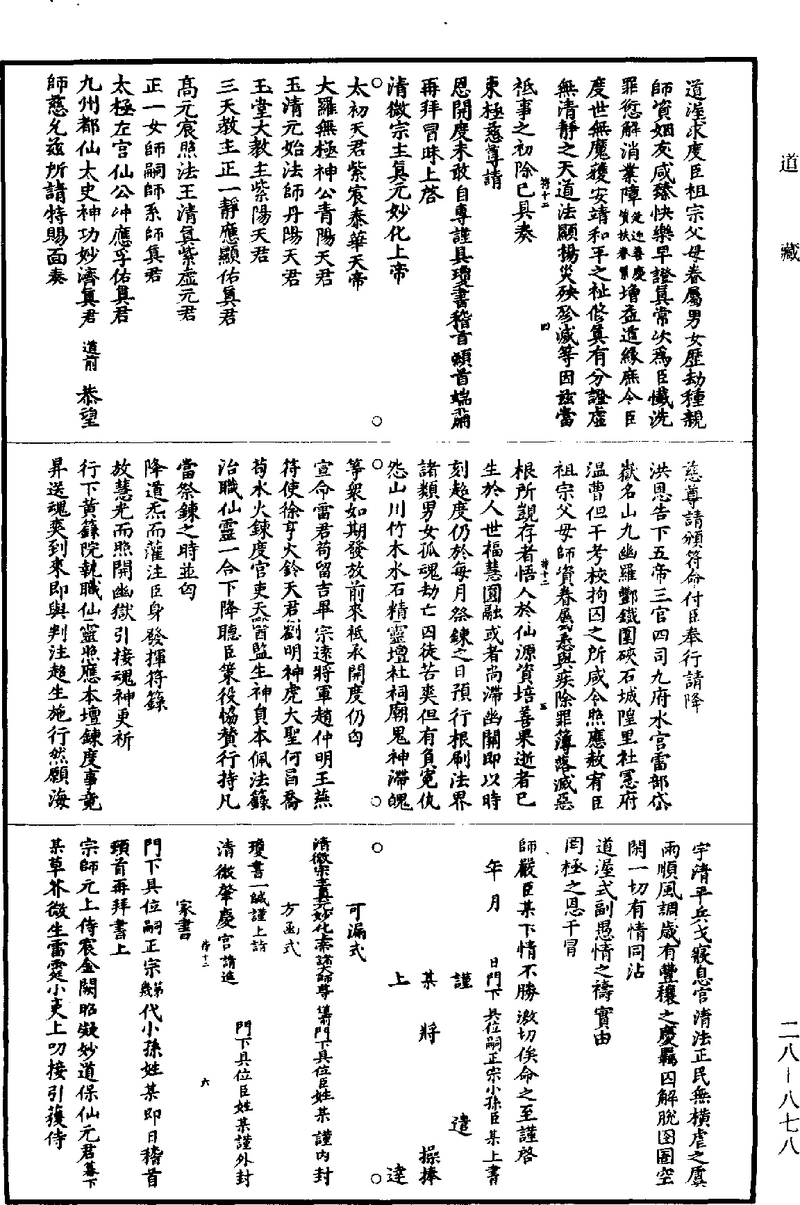 道藏
道渥求度臣祖宗父母眷屬男女歷劫種親
師資姻友咸臻快樂早證真常次為臣懺洗
罪愆解消業障增益道緣庶令臣
度世無魔穫安靖和平之祉修真有分證虛
無清靜之天道法顯揚災殃殄滅等因茲當
祗事之初除已具奏
東極慈尊請
恩開度未敢自專謹具瓊書稽首頓首端肅
再拜冒昧上啓
清微宗主真元妙化上帝
太初天君紫宸泰華天帝
大羅無極神公青陽天君
玉清元始法師丹陽天君
玉堂大教主紫陽天君
三天教主正一靜應顯佑真君
高元宸照法王清真紫虛元君
正一女師嗣師系師真君
太極左宮仙公冲應孚佑真君
九州都仙太史神功妙濟真君 道前 恭望
師慈允茲所請特賜面奏
慈尊請頒符命付臣奉行請降
洪恩告下五帝三官四司九府水官雷部岱
嶽名山九幽羅酆鐵圍硤石城隍里社冥府
温曹但干考校拘囚之所咸令照應赦宥臣
祖宗父母師資眷屬愆與疾除罪簿落滅惡
根所覬存者悟人於仙源資培善果逝者已
生於人世福慧圓融或者尚滯幽關即以時
刻超度仍於每月祭鍊之日預行根刷法界
諸類男女孤魂劫亡囚徒苦爽但有負冤仇
怨山川竹木水石精靈壇社祠廟鬼神滯魄
等衆如期發放前來祗承開度仍匄
宣命雷君苟留吉畢宗遠將軍趙仲明王燕
符使徐亨火鈴天君劉明神虎大聖何昌喬
荀水火鍊度官吏天醫監生神負本佩法籙
治職仙靈一合下降聽臣策役協贊行持凡
當祭鍊之時並匄
降道炁而灌注臣身發揮符籙
放慧光而照開幽獄引接魂神更祈
行下黃籙院執職仙靈照應本壇鍊度事竟
昇送魂爽到來即與判注超生施行然願海
宇清平兵戈寢息官清法正民無橫虐之虞
雨順風調歲有豐穰之慶羈囚解脫囹圄空
閑一切有情同沾
道渥式副愚情之禱實由
罔極之恩干冒
師嚴臣某下情不勝激切俟命之至謹啓
年 月 日門下具位嗣正宗小孫臣某上書
謹 遣
某 將 操捧
上 達
可漏式
門下具位臣姓某謹內封
方函式
瓊書一緘謹上詣
清微肇慶宮請進
門下具位臣姓某謹外封
家書
門下具位嗣正宗第幾代小孫姓某即日稽首
頓首再拜書上
宗師元上侍宸金闕昭凝妙道保仙元君幕下
某草芥微生雷霆小吏上叨接引獲侍
二八-八七八